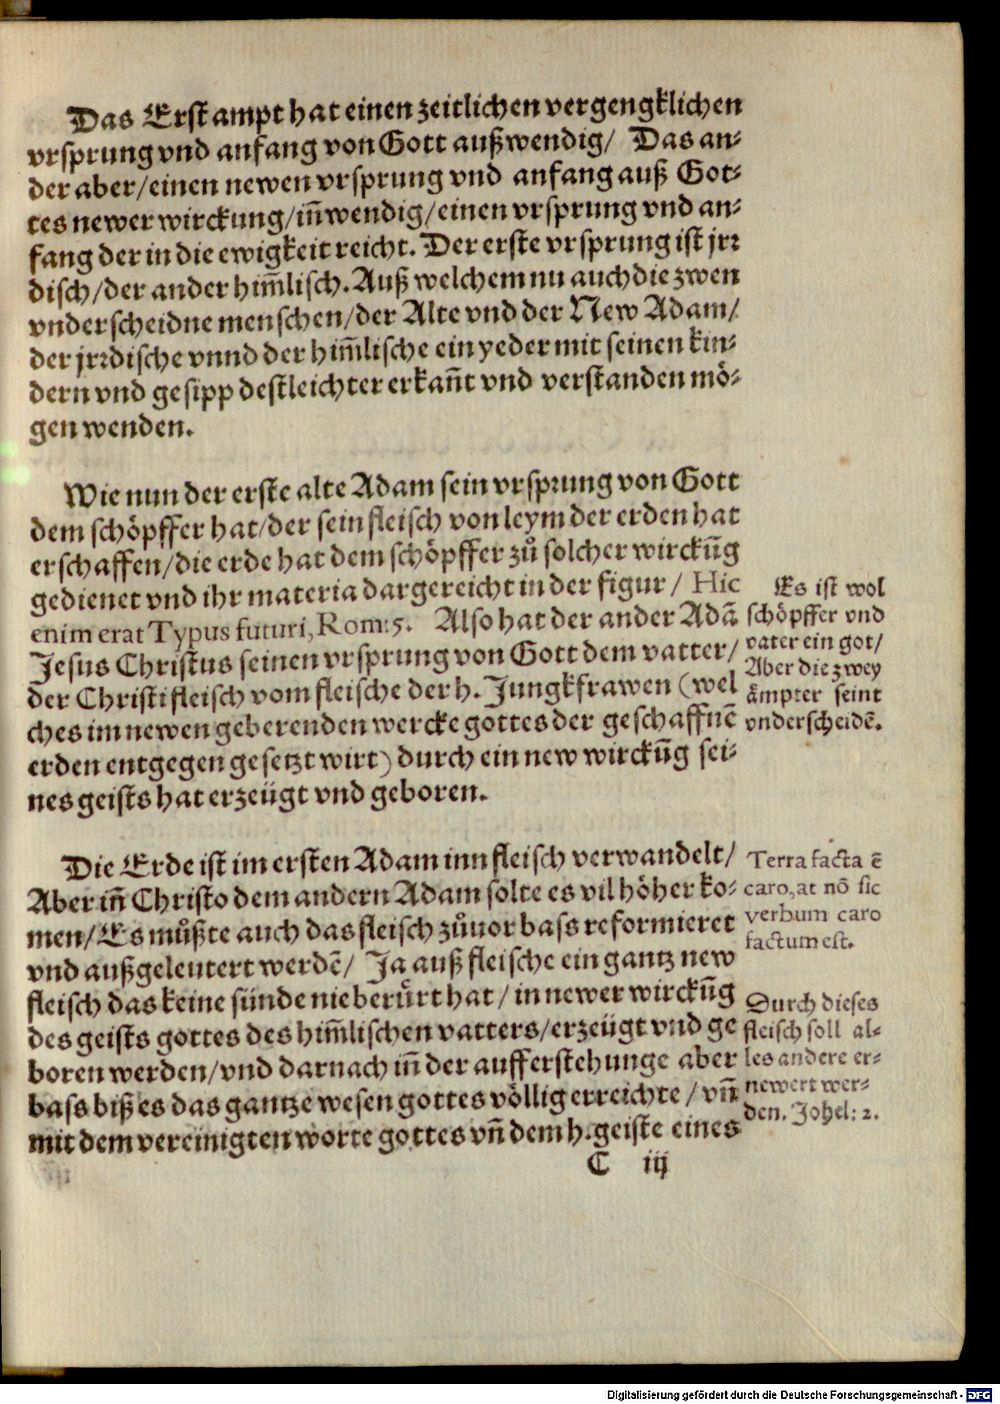 Das Erst ampt hat einen zeitlichen vergengklichen
vrsprung vnd anfang von Gott außwendig/ Das an-
der aber/einen newen vrsprung vnd anfang auß Got-
tes newer wirckung/iñwendig/einen vrsprung vnd an-
fang der in die ewigkeit reicht. Der erste vrsprung ist jrr
disch/der ander him̃lisch. Auß welchem nu auch die zwen
vnderscheidne menschen/der Alte vnd der New Adam/
der jrrdische vnnd der him̃lische ein yeder mit seinen kin-
dern vnd gesipp destleichter erkañt vnd verstanden mö-
gen wenden.
Wie nun der erste alte Adam sein vrsprung von Gott
dem schöpffer hat/der sein fleisch von leym der erden hat
erschaffen/die erde hat dem schöpffer zů solcher wirckũg
gedienet vnd ihr materia dargereicht in der figur/ Hic
enim erat Typus futuri, Rom:5. Also hat der ander Adã
Jesus Christus seinen vrsprung von Gott dem vatter/
der Christi fleisch vom fleische der h. Jungkfrawen (wel
ches im newen geberenden wercke gottes der geschaffnẽ
erden entgegen gesetzt wirt) durch ein new wirckũg sei-
nes geists hat erzeügt vnd geboren.
Es ist wol
schöpffer vnd
vater ein got/
Aber die zwey
ämpter seint
vnderscheidẽ.
Die Erde ist im ersten Adam inn fleisch verwandelt/
Aber iñ Christo dem andern Adam solte es vil höher ko-
men/Es můßte auch das fleisch zůuor bass reformieret
vnd außgeleutert werdẽ/ Ja auß fleische ein gantz new
fleisch das keine sünde nie berůrt hat/in newer wirckũg
des geists gottes des him̃lischen vatters/erzeügt vnd ge
boren werden/vnd darnach iñ der aufferstehunge aber
bass biß es das gantze wesen gottes völlig erreichte/vñ
mit dem vereinigten worte gottes vñ dem h. geiste eines
Terra facta ẽ
caro, at nõ sic
verbum caro
factum est.
Durch dieses
fleisch soll al-
les andere er-
newert wer-
den. Johel: 2.
C iij
Digitalisierung gefördert durch die Deutsche Forschungsgemeinschaft - DFG